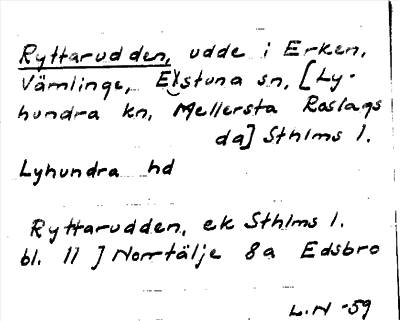 Ryttarudden, udde i Erken,
Vämlinge, Estuna sn, [Ly-
hundra kn, Mellersta Roslags
da] Sthlms l.
Lyhundra hd
Ryttarudden, ek Sthlms l.
bl. 11 ] Norrtälje 8a Edsbro
L.N -59